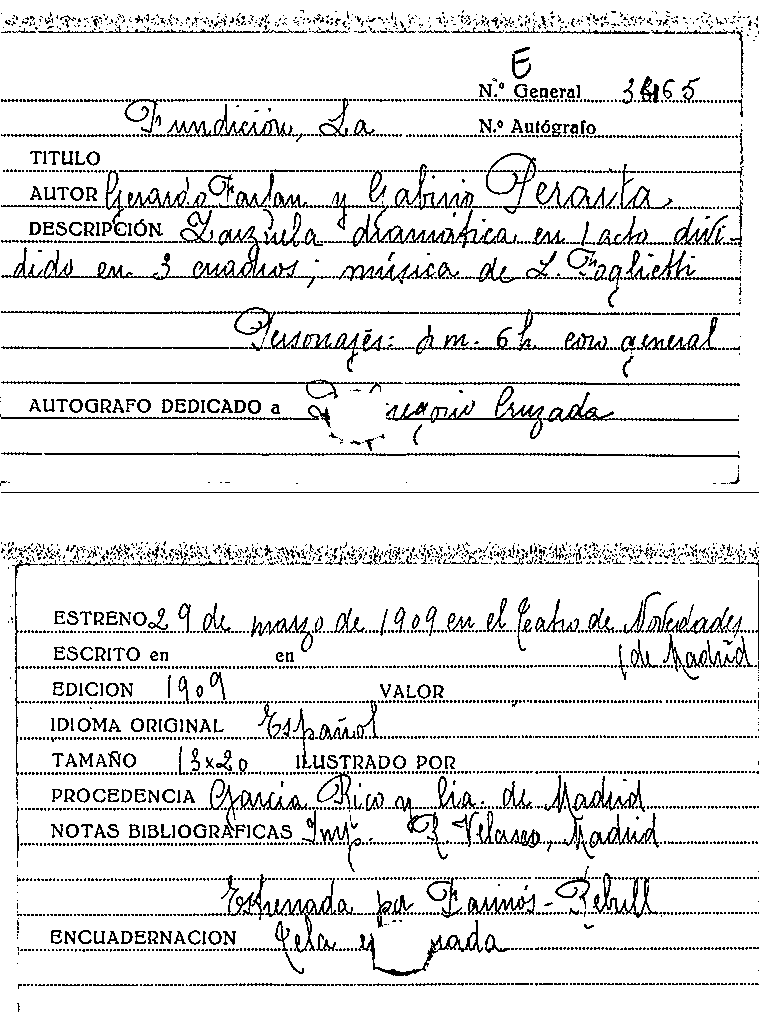 E
N.º General 3465
Fundición, La N.º Autógrafo
TITULO
AUTOR Gerardo Farfan y Gabino Peraita
DESCRIPCIÓN Zarzuela dramática en 1 acto divi-
dido en 3 cuadros; música de L. Foglietti
Personajes: 4 m. 6 h. coro general
AUTOGRAFO DEDICADO a D. Gregorio Cruzada
ESTRENO 29 de marzo de 1909 en el Teatro de Novedades
ESCRITO en en (de Madrid
EDICION 1909 VALOR
IDIOMA ORIGINAL Español
TAMAÑO 13x20 ILUSTRADO POR
PROCEDENCIA García Rico y Cia. de Madrid
NOTAS BIBLIOGRAFICAS Imp. R Velasco, Madrid
Estrenada por Farinós-Rebull
ENCUADERNACION Tela